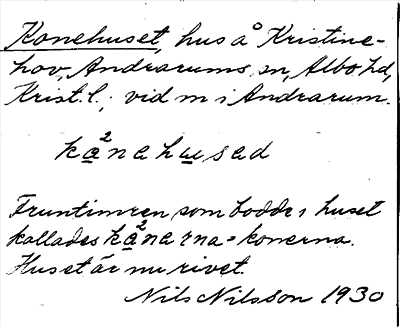 Konehuset, hus å Kristine-
hov, Andrarums sn, Albo hd,
Krist. l.; vid m i Andrarum.
kå²nahusad
Fruntimren som bodde i huset
kallades kå²narna = konerna.
Huset är nu rivet.
Nils Nilsson 1930